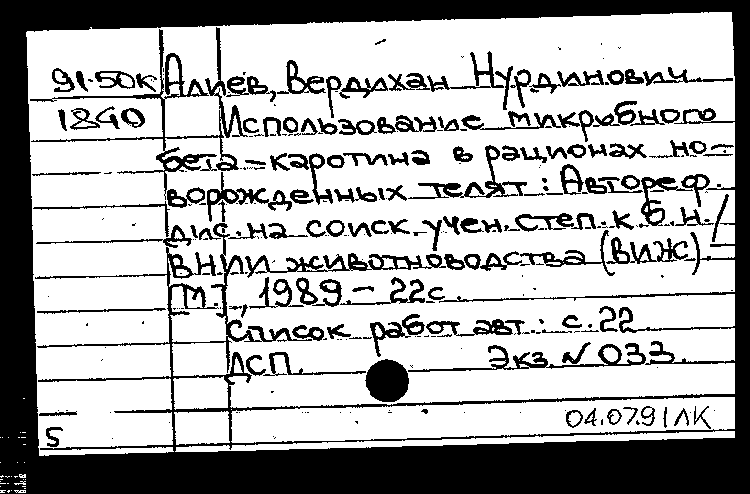 91-50К Алиев, Вердихан Нурдинович
1840 Использование микробного
бета-каротина в рационах но-
ворожденных телят: Автореф.
дис. на соиск. учен. степ. к.б.н./
ВНИИ животноводства (ВИЖ).-
[М.], 1989.- 22с.
Список работ авт.: с.22
ДСП. Экз. № 033.
04.07.91 ЛК
5